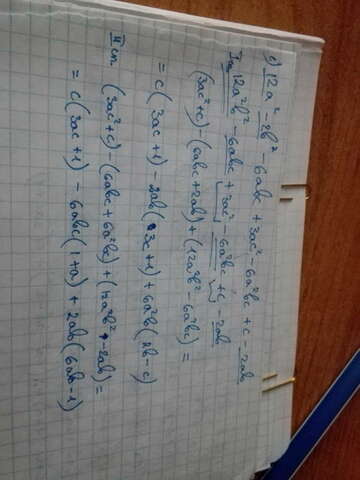 c) 12a² - 2b² - 6abc + 3ac² - 6a²bc + c - 2ab
I сп 12a²b² - 6abc + 3ac² - 6a²bc + c - 2ab
(3ac²+c) - (6abc+2ab) + (12a²b² - 6a²bc) =
= c(3ac+1) - 2ab(3c+1) + 6a²b(2b-c)
II сп (3ac²+c) - (6abc+6a²bc) + (12a²b² - 2ab) =
= c(3ac+1) - 6abc(1+a) + 2ab(6ab-1)